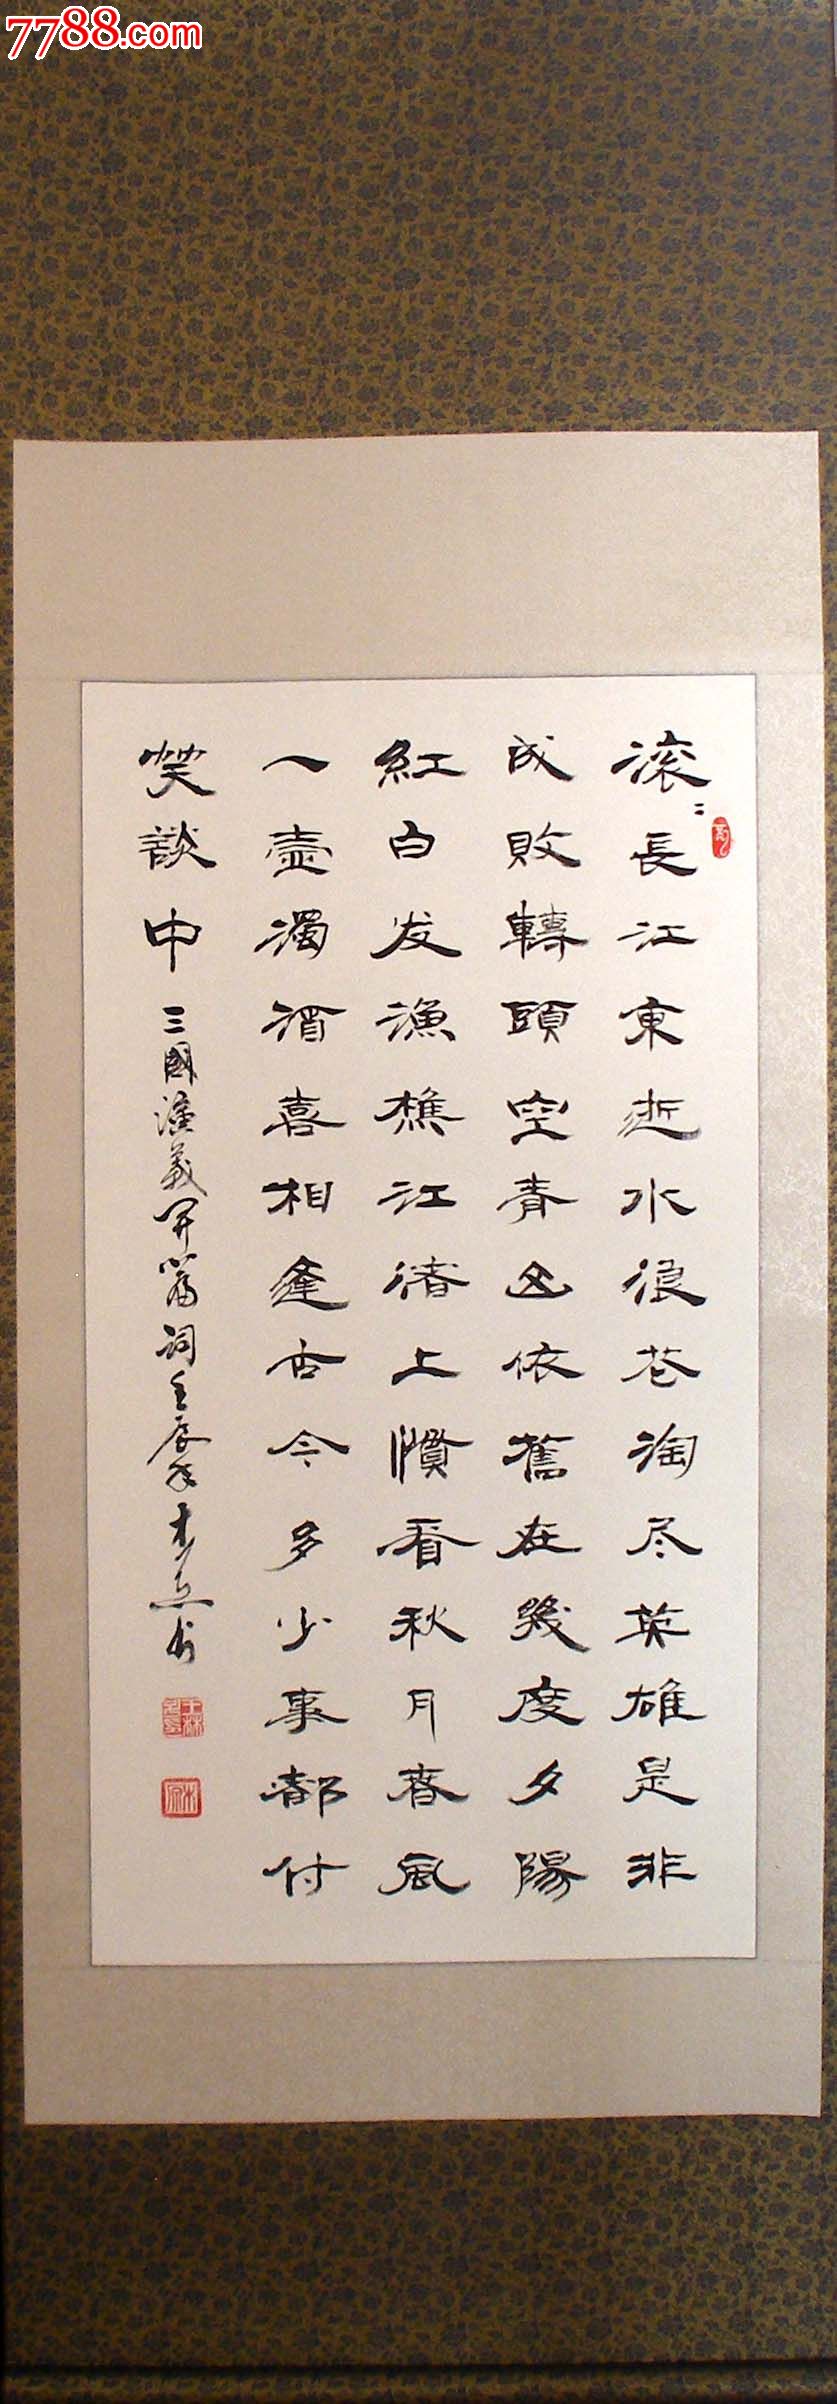 7788.com
滚〻長江東逝水浪花淘尽英雄是非
成敗轉頭空青山依舊在幾度夕陽
紅白发漁樵江渚上慣看秋月春風
一壺濁酒喜相逢古今多少事都付
笑談中
三國演義开篇词壬辰年